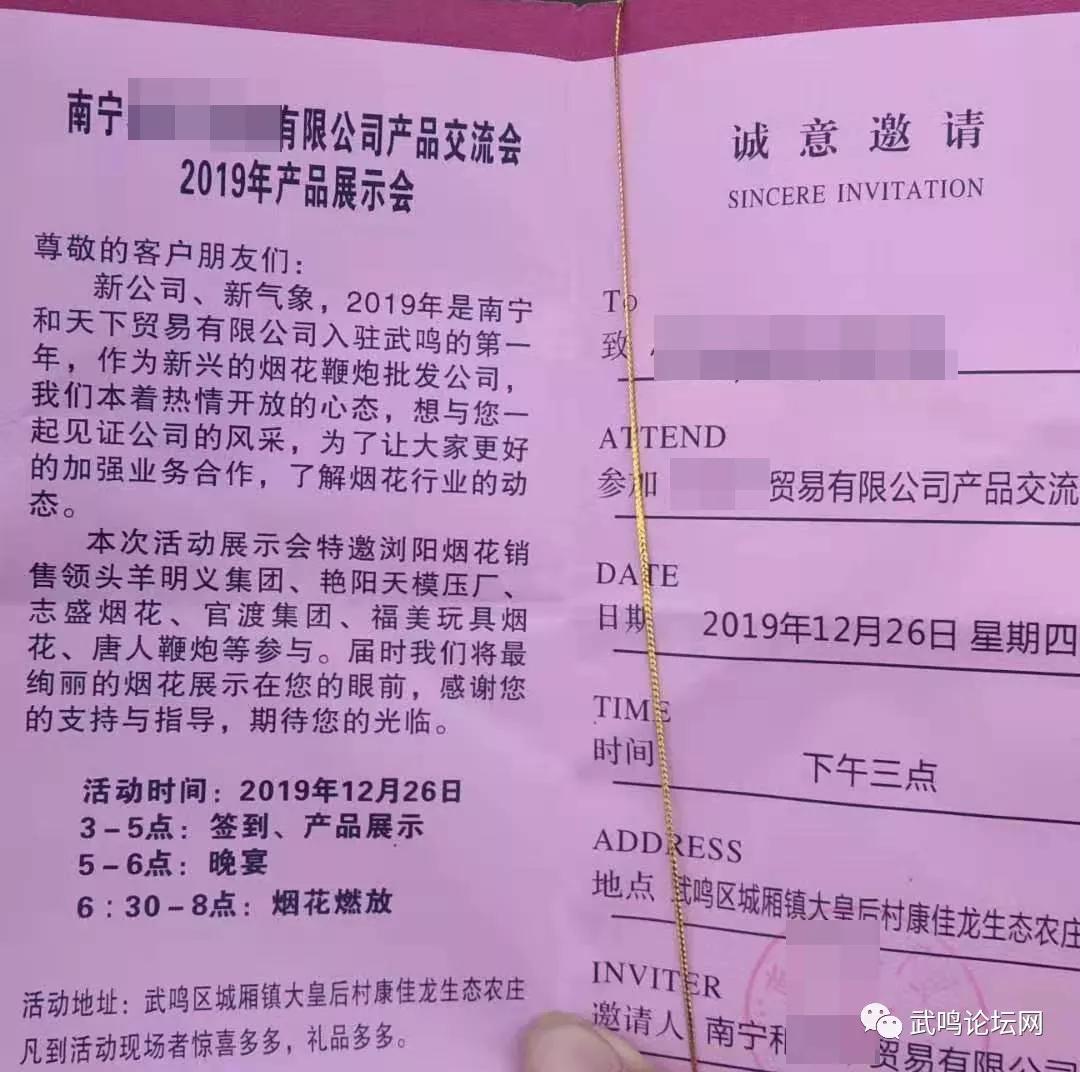 南宁 有限公司产品交流会
2019年产品展示会
尊敬的客户朋友们：
新公司、新气象，2019年是南宁
和天下贸易有限公司入驻武鸣的第一
年，作为新兴的烟花鞭炮批发公司，
我们本着热情开放的心态，想与您一
起见证公司的风采，为了让大家更好
的加强业务合作，了解烟花行业的动
态。
本次活动展示会特邀浏阳烟花销
售领头羊明义集团、艳阳天模压厂、
志盛烟花、官渡集团、福美玩具烟
花、唐人鞭炮等参与。届时我们将最
绚丽的烟花展示在您的眼前，感谢您
的支持与指导，期待您的光临。
活动时间：2019年12月26日
3－5点：签到、产品展示
5－6点：晚宴
6：30－8点：烟花燃放
活动地址：武鸣区城厢镇大皇后村康佳龙生态农庄
凡到活动现场者惊喜多多，礼品多多。
诚意邀请
SINCERE INVITATION
To
致
ATTEND
参加 贸易有限公司产品交流
DATE
日期 2019年12月26日 星期四
TIME
时间 下午三点
ADDRESS
地点 武鸣区城厢镇大皇后村康佳龙生态农庄
INVITER
邀请人 南宁和 贸易有限公司
武鸣论坛网